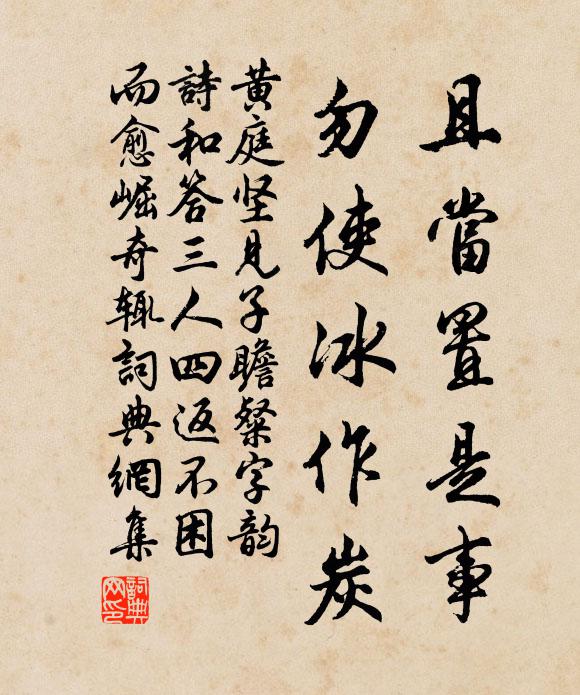 且當置是事
勿使冰作炭
黄庭坚見子瞻粲字韵
詩和答三人四返不困
而愈崛奇辄詞典網集
詞典
网印